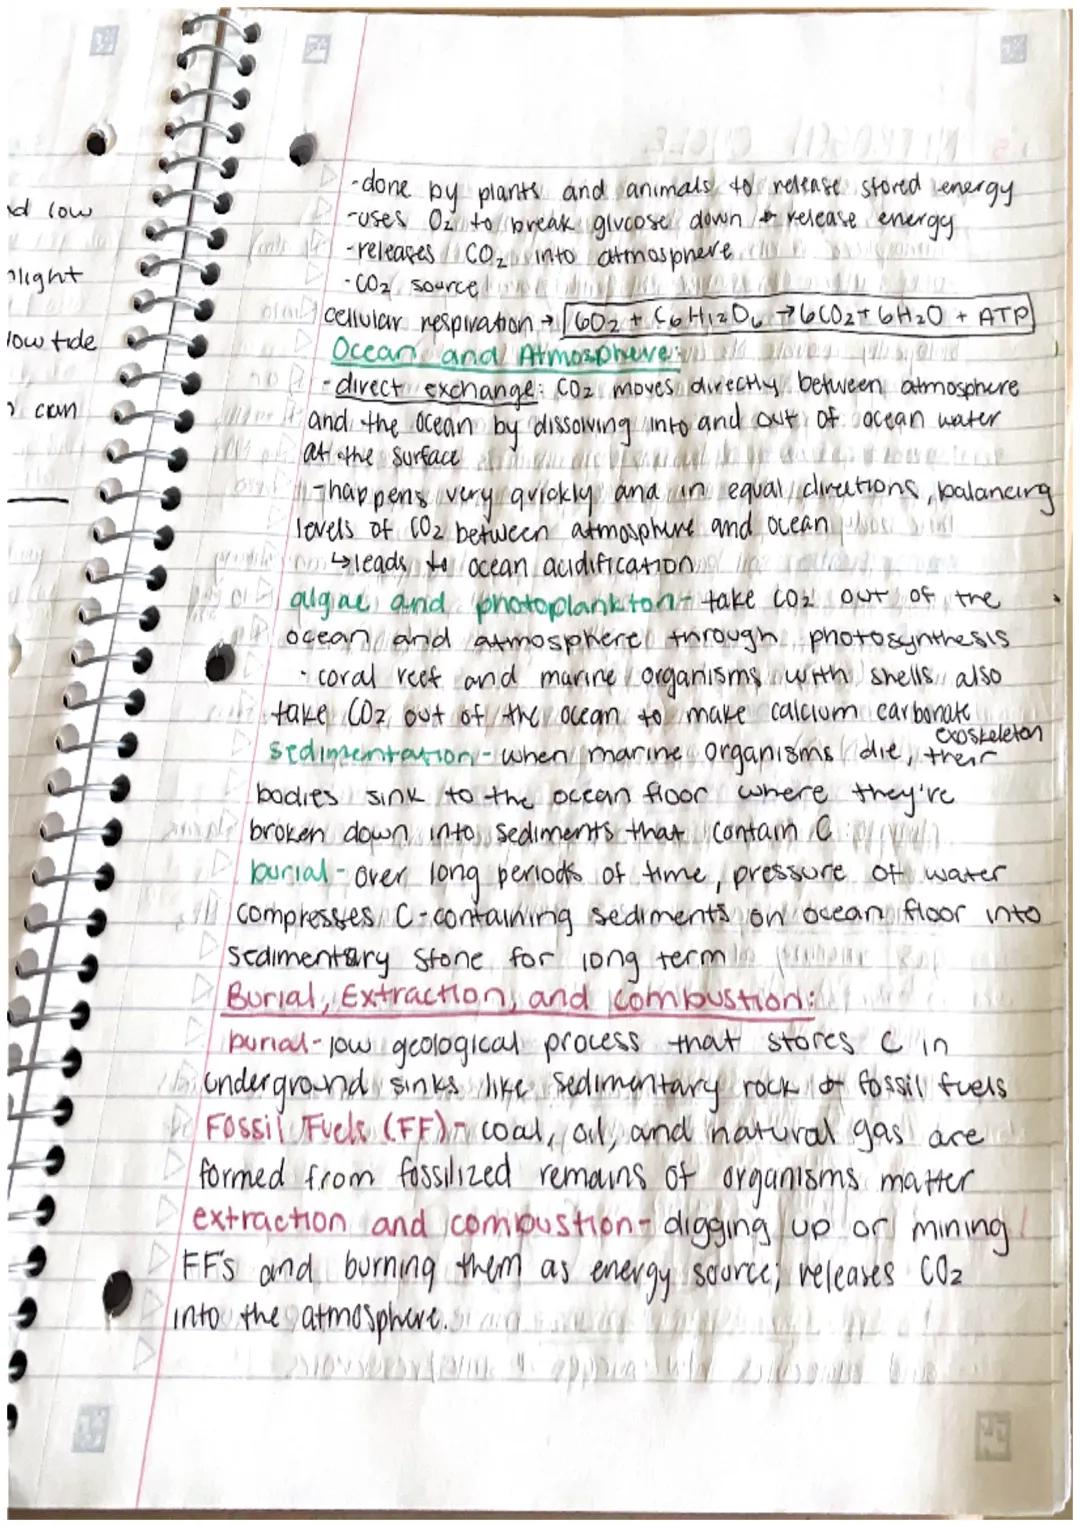 -done by plants and animals to release stored energy
-uses O2 to break glucose down & release energy
-releases CO2 into atmosphere
-CO2 source
cellular respiration → 6O2 + C6H12O6 → 6CO2 + 6H2O + ATP
Ocean and Atmosphere:
-direct exchange: CO2 moves directly between atmosphere
and the ocean by dissolving into and out of ocean water
at the surface
-happens very quickly and in equal directions, balancing
levels of CO2 between atmosphere and ocean
↳leads to ocean acidification
algae and photoplankton- take CO2 out of the
ocean and atmosphere through photosynthesis
· coral reef and marine organisms with shells also
take CO2 out of the ocean to make calcium carbonate
exoskeleton
sedimentation - when marine organisms die, their
bodies sink to the ocean floor where they're
broken down into sediments that contain C
burial - over long periods of time, pressure of water
compresses C-containing sediments on ocean floor into
sedimentary stone for long term
Burial, Extraction, and Combustion:
burial- low geological process that stores C in
underground sinks like sedimentary rock or fossil fuels
Fossil Fuels (FF)- coal, oil, and natural gas are
formed from fossilized remains of organisms matter
extraction and combustion- digging up or mining
FFs and burning them as energy source; releases CO2
into the atmosphere.
nd low
nlight
low tide
can